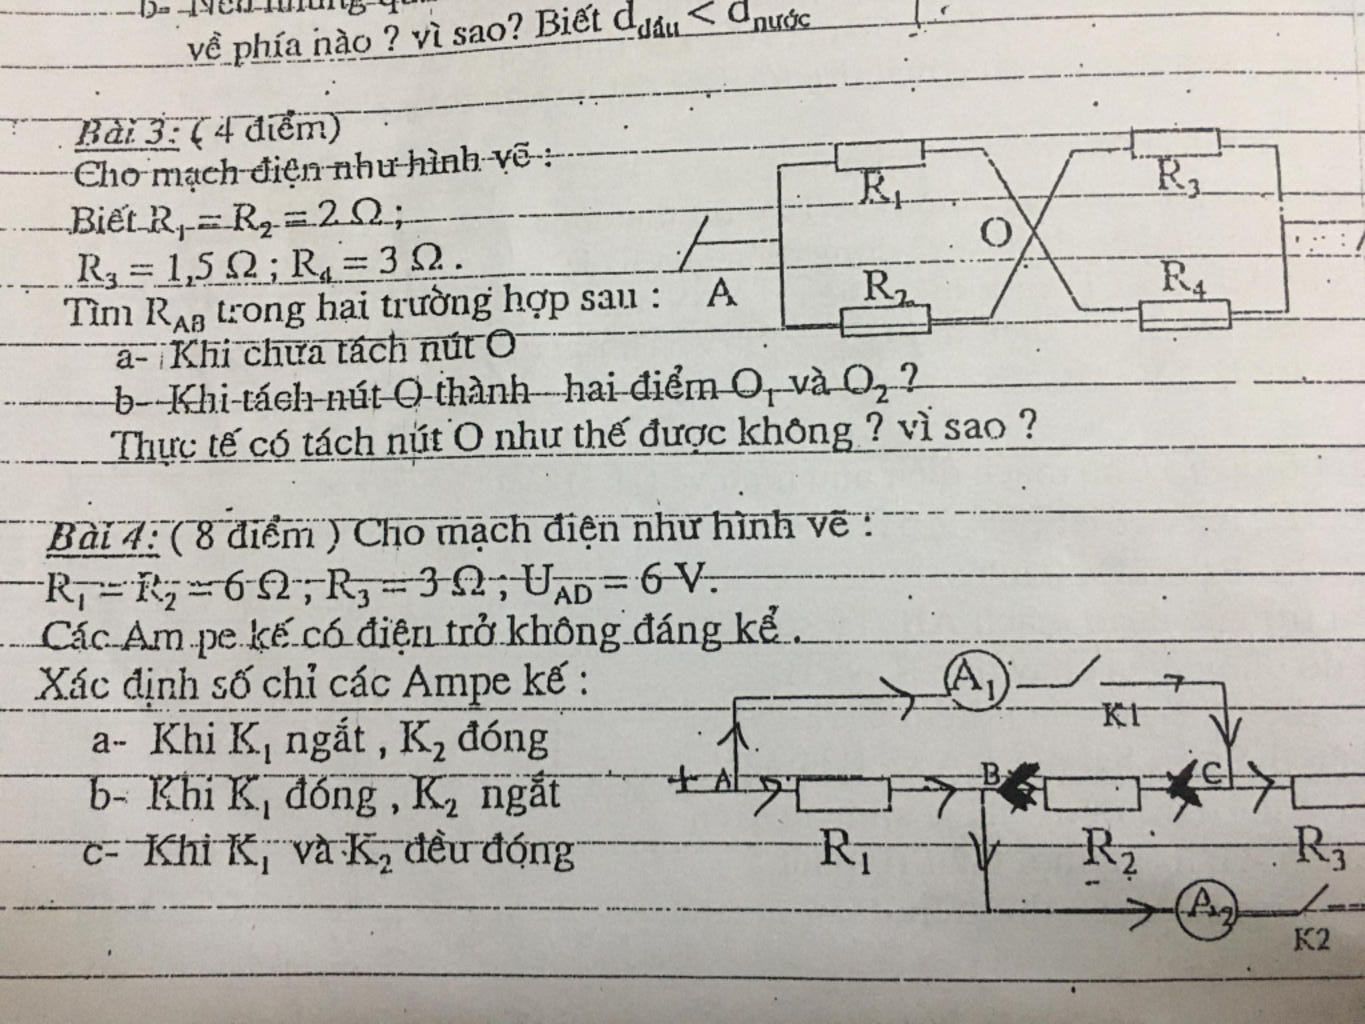 b- Nếu nhúng
về phía nào ? vì sao? Biết d dầu < d nước
Bài 3: ( 4 điểm)
Cho mạch điện như hình vẽ :
Biết R₁ = R₂ = 2 Ω ;
R₃ = 1,5 Ω ; R₄ = 3 Ω .
Tìm R_AB trong hai trường hợp sau :
a- Khi chưa tách nút O
b- Khi tách nút O thành hai điểm O₁ và O₂ ?
Thực tế có tách nút O như thế được không ? vì sao ?
R₁
R₃
O
A
R₂
R₄
Bài 4: ( 8 điểm ) Cho mạch điện như hình vẽ :
R₁ = R₂ = 6 Ω ; R₃ = 3 Ω ; U_AD = 6 V.
Các Am pe kế có điện trở không đáng kể .
Xác định số chỉ các Ampe kế :
a- Khi K₁ ngắt , K₂ đóng
b- Khi K₁ đóng , K₂ ngắt
c- Khi K₁ và K₂ đều đóng
A₁
K1
+ A
B
C
R₁
R₂
R₃
A₂
K2